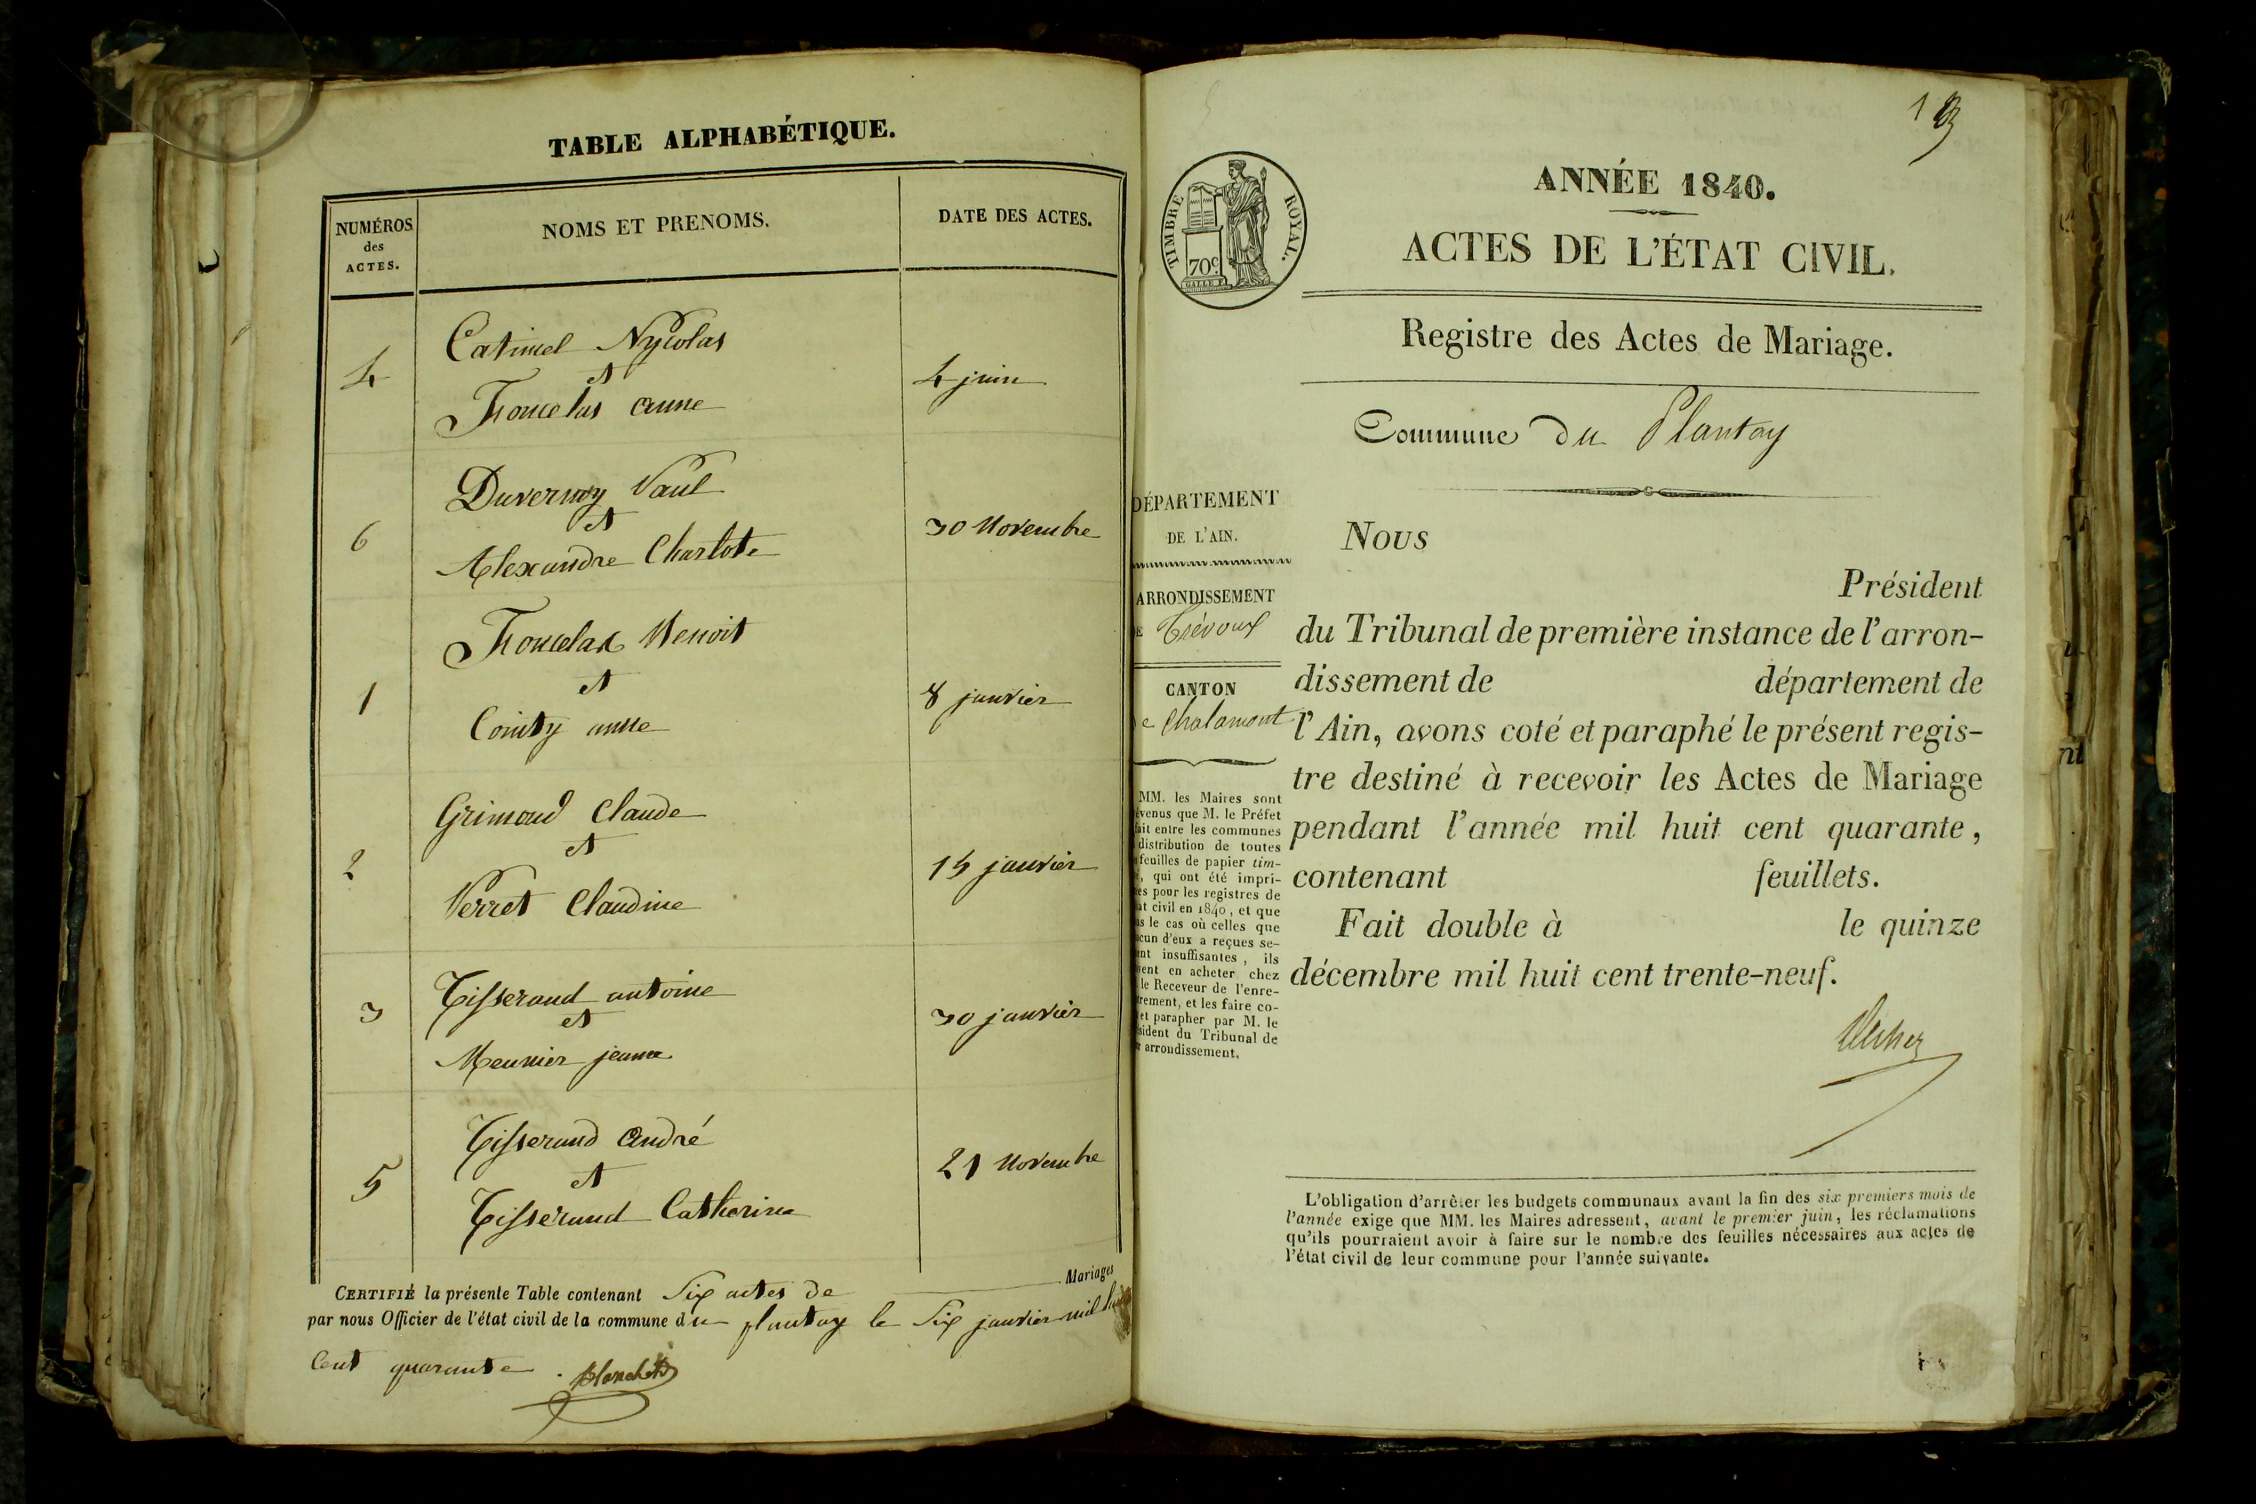 TABLE ALPHABÉTIQUE.
NUMÉROS
des
ACTES.
NOMS ET PRENOMS.
DATE DES ACTES.
Catimel Nycolas
4
et
4 juin
Foucelas anne
Duvernay Paul
6
et
30 Novembre
Alexandre Charlote
Benoit
1
et
8 janvier
anne
Grimaud Claude
2
et
15 janvier
Perret Claudine
Tisserand antoine
3
et
30 janvier
Meunier jeanne
Tisserand André
5
et
21 Novembre
Tisserand Catherine
CERTIFIÉ la présente Table contenant Six actes de Mariages
par nous Officier de l'état civil de la commune du plantay le Six janvier mil huit
Cent quarante. Blanchet
TIMBRE ROYAL.
70c.
ANNÉE 1840.
ACTES DE L'ÉTAT CIVIL.
Registre des Actes de Mariage.
Commune du Plantay
DÉPARTEMENT
DE L'AIN.
ARRONDISSEMENT
E Trévoux
CANTON
e Chalamont
MM. les Maires sont
évenus que M. le Préfet
fait entre les communes
distribution de toutes
feuilles de papier tim-
é, qui ont été impri-
es pour les registres de
at civil en 1840, et que
s le cas où celles que
acun d'eux a reçues se-
ent insuffisantes, ils
vent en acheter chez
le Receveur de l'enre-
trement, et les faire co-
et parapher par M. le
sident du Tribunal de
r arrondissement.
Nous
Président
du Tribunal de première instance de l'arron-
dissement de département de
l'Ain, avons coté et paraphé le présent regis-
tre destiné à recevoir les Actes de Mariage
pendant l'année mil huit cent quarante,
contenant feuillets.
Fait double à le quinze
décembre mil huit cent trente-neuf.
L'obligation d'arrêter les budgets communaux avant la fin des six premiers mois de
l'année exige que MM. les Maires adressent, avant le premier juin, les réclamations
qu'ils pourraient avoir à faire sur le nombre des feuilles nécessaires aux actes de
l'état civil de leur commune pour l'année suivante.